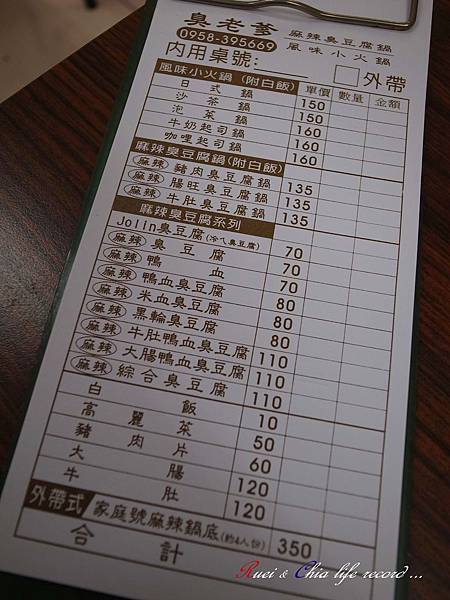 臭老爹 麻辣臭豆腐鍋
0958-395669 風味小火鍋
內用桌號: 外帶
風味小火鍋(附白飯) 單價 數量 金額
日式鍋 150
沙茶鍋 150
泡菜鍋 160
牛奶起司鍋 160
咖哩起司鍋 160
麻辣臭豆腐鍋(附白飯)
麻辣 豬肉臭豆腐鍋 135
麻辣 腸旺臭豆腐鍋 135
麻辣 牛肚臭豆腐鍋 135
麻辣臭豆腐系列
Jolin臭豆腐(冷ㄟ臭豆腐) 70
麻辣 臭豆腐 70
麻辣 鴨血 70
麻辣 鴨血臭豆腐 80
麻辣 米血臭豆腐 80
麻辣 黑輪臭豆腐 80
麻辣 牛肚臭豆腐 110
麻辣 大腸鴨血臭豆腐 110
麻辣 綜合臭豆腐 110
白飯 10
高麗菜 50
豬肉片 60
大腸 120
牛肚 120
外帶式 家庭號麻辣鍋底(約4人份) 350
合計
Ruei & Chia life record ...